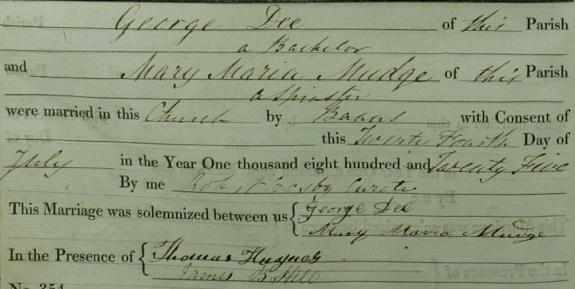 George Dee of this Parish
a Bachelor
and Mary Maria Mudge of this Parish
a Spinster
were married in this Church by Banns with Consent of
this Twenty Fourth Day of
July in the Year One thousand eight hundred and Twenty Five
By me Crosby Curate
This Marriage was solemnized between us { George Dee
Mary Maria Mudge
In the Presence of { Thomas Hughes
James
No. 354